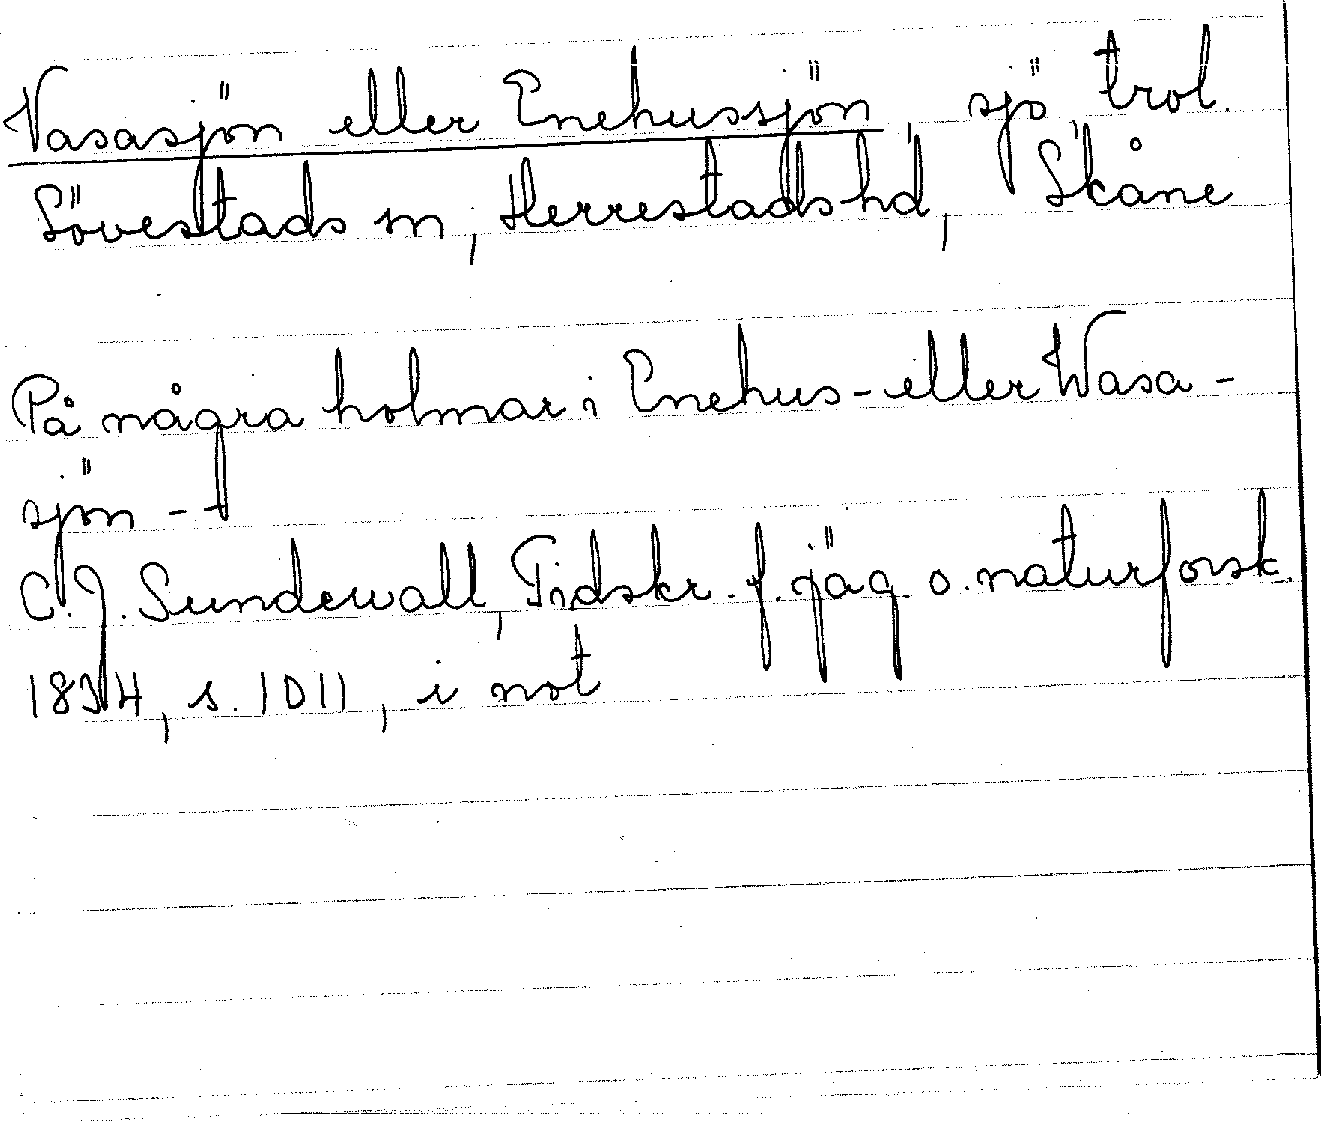 Vasasjön eller Enehussjön, sjö, trol.
Sövestads sn, Herrestads hd, Skåne
På några holmar i Enehus- eller Wasa-
sjön - -
C. J. Sundewall, Tidskr. f. jäg. o. naturforsk.
1834, s. 1011, i not